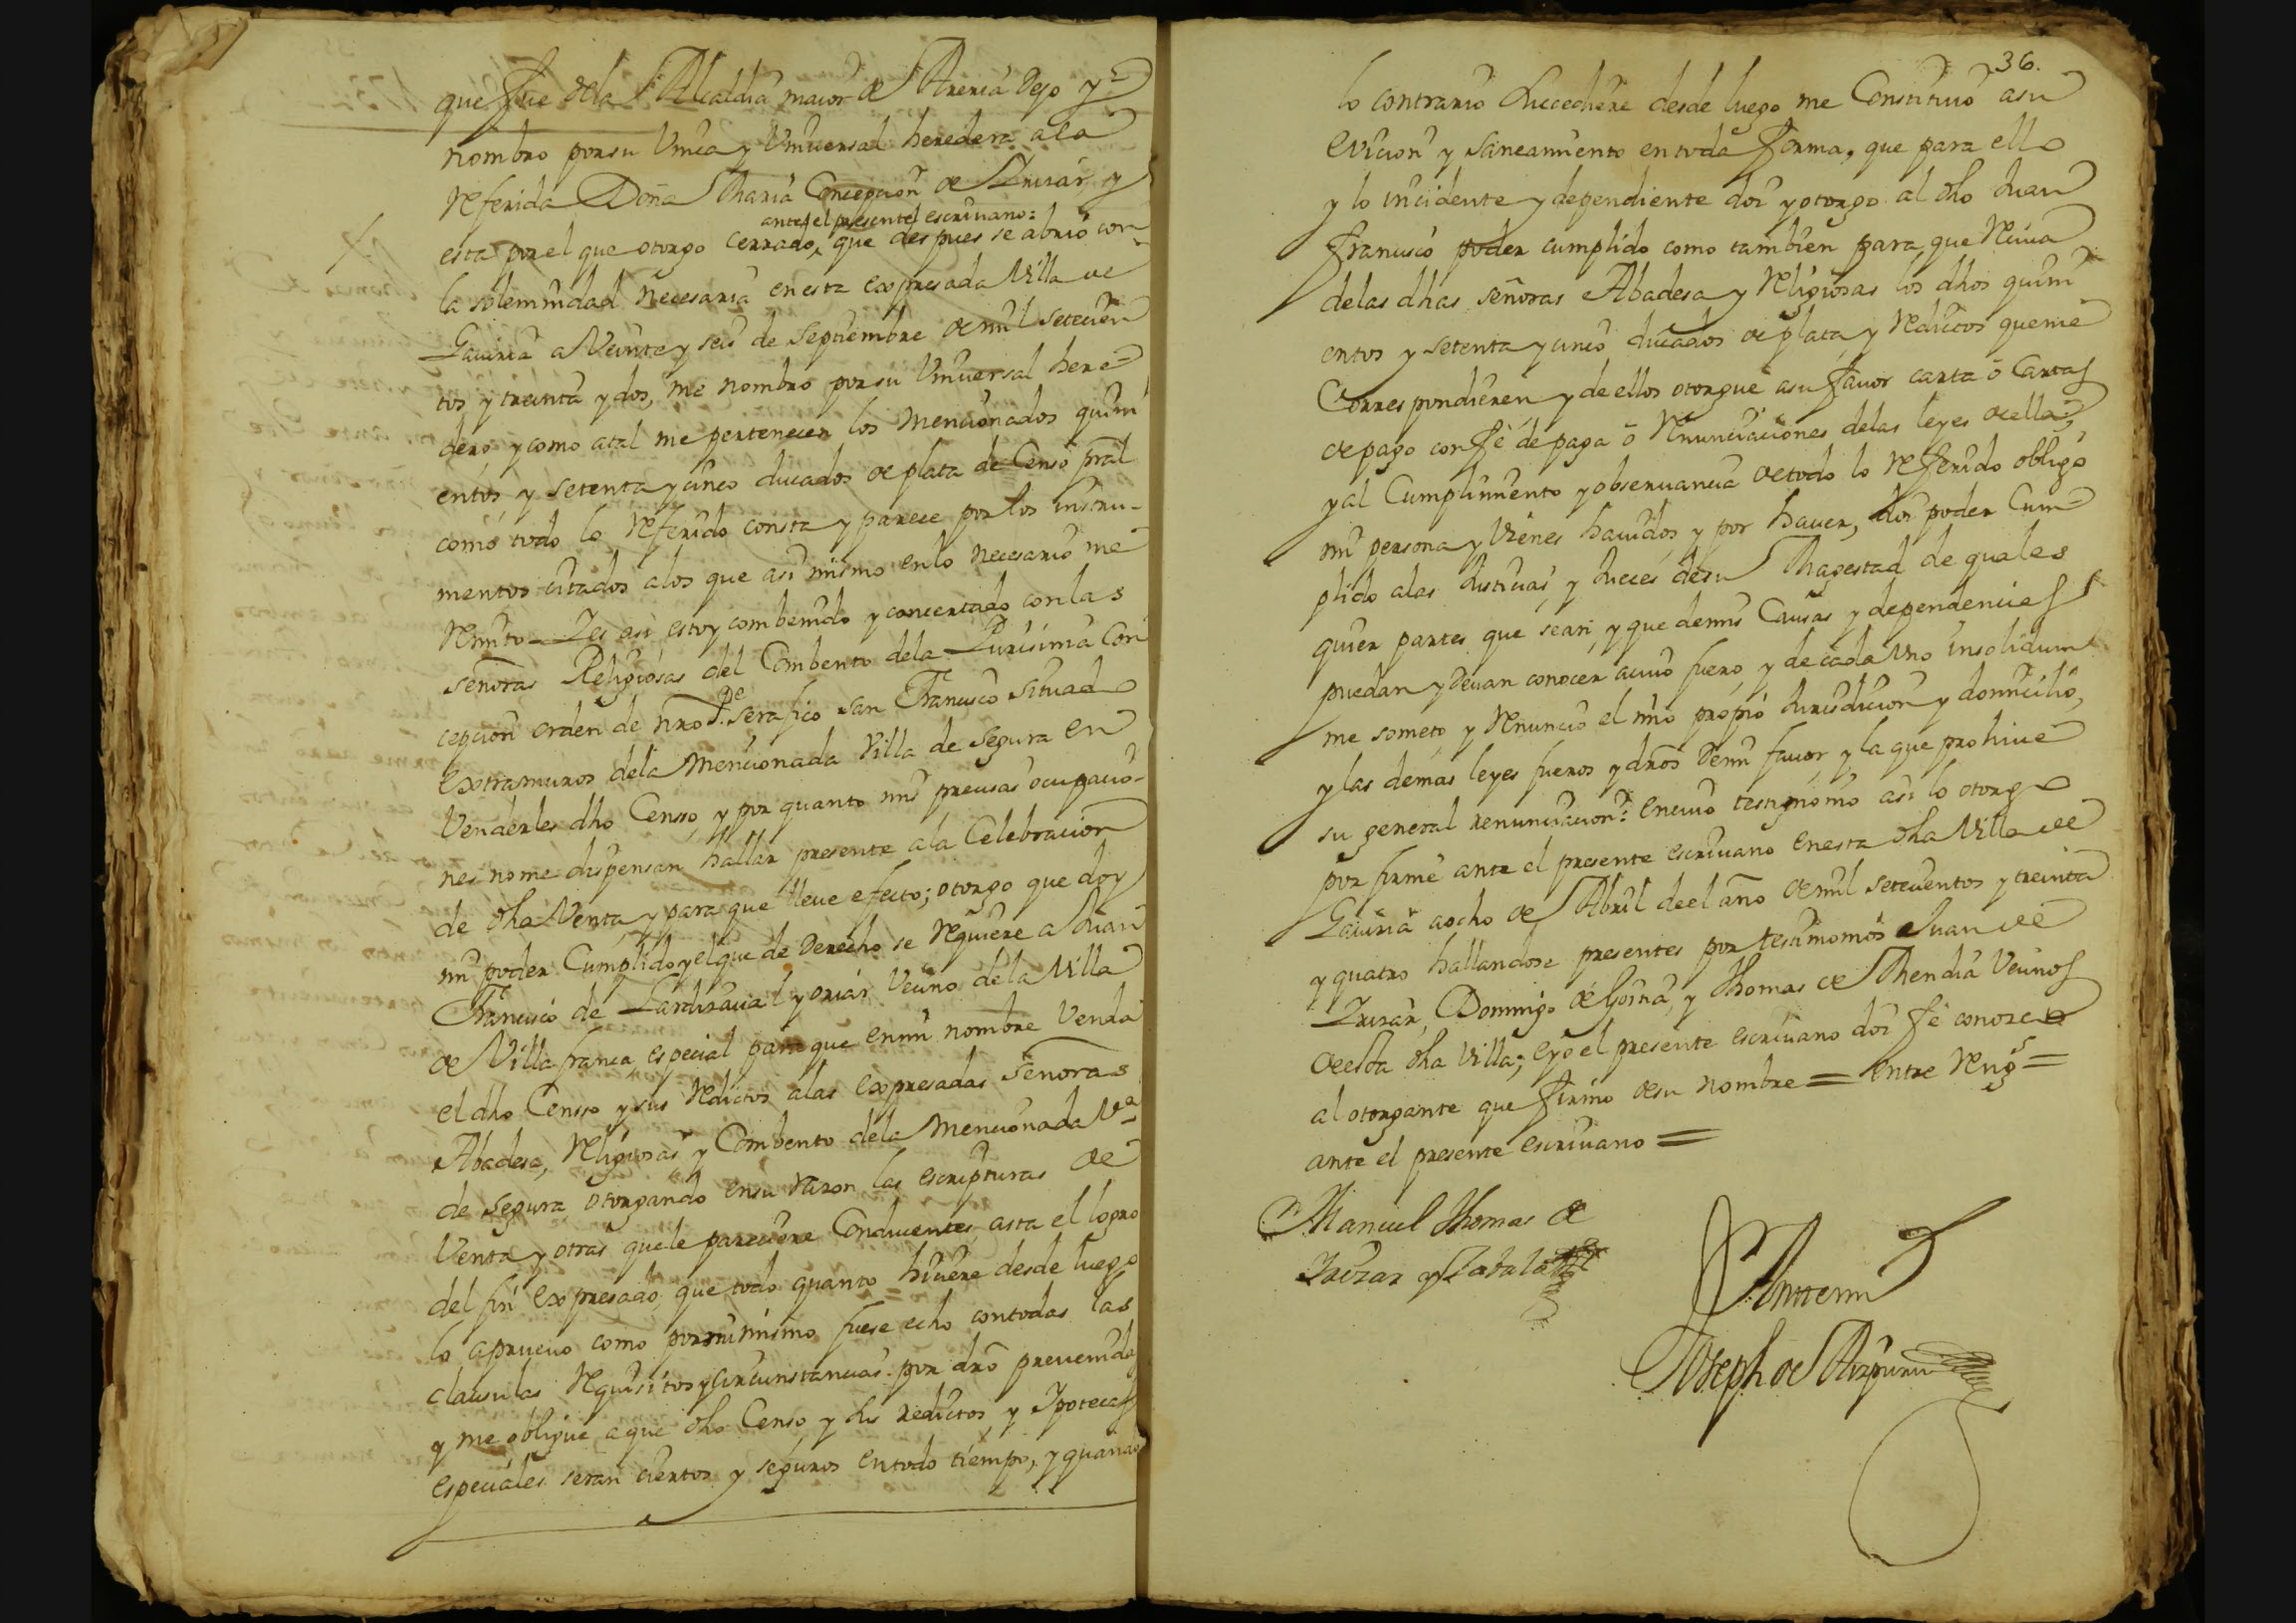 que fue dela Alcaldia maior de Areria Dejo y
nombro por su Unica y Universal heredera ala
referida Doña Maria Concepcion de Irizar, y
antel el presente escriuano:
esta por el que otorgo cerrado, que despues se abrio con
la solemnidad necesaria en esta expresada Villa de
Gauiria a Veinte y seis de septiembre de mil setecien
tos y treinta y dos, me nombro por su Universal here
dero y como atal me pertenecen los mencionados quini
entos, y setenta y cinco ducados de plata de Censo pral
como todo lo referido consta y parece por los instru-
mentos citados alos que asi mismo enlo necesario me
remito Y es asi estoy combenido y concertado con las
señoras Religiosas del Combento dela Purisima Con
cepcion orden de nro Pe serafico san Francisco situado
extramuros dela mencionada Villa de Segura en
Venderles dho Censso, y por quanto mis precisas ocupacio-
nes no me dispensan hallar presente ala Celebracion
de dha Venta, y para que lleue efecto; otorgo que doy
mi poder Cumplido y el que de Derecho se requiere a Juan
Francisco de Lardizaual y oriar Vecino dela Villa
de Villafranca, especial para que en mi nombre Venda
el dho Censso y sus redictos alas expresadas señoras
Abadesa, religiosas y Combento dela mencionada Va
de Segura otorgando en su razon las escripturas de
Venta y otras que le pareciere Conducentes, asta el logro
del fin expresado, que todo quanto hiciere desde luego
lo aprueuo como por mi mismo fuese echo con todas las
clausulas requisitos y circunstancias por dro preuenida
y me obligue a que dho Censo y sus redictos, y Ypotecas
especiales seran ciertos y seguros en todo tiempo, y quando
36.
lo contrario succediere desde luego me Constituio asu
evicion y saneamiento en toda forma, que para ello
y lo incidente y dependiente doi y otorgo al dho Juan
francisco poder cumplido como tambien para que reciua
delas dhas señoras Abadesa y religiosas los dhos quini
entos y setenta y cinco ducados de plata, y redictos que me
Correspondieren y de ellos otorgue asu fauor carta ô Cartas
de pago con fê de paga ô renunciaciones delas leyes de ella;
y al Cumplimiento y obseruancia de todo lo referido obligo
mi persona y Vienes hauidos y por hauer, doi poder Cum
plido alas Justicias, y Jueces de su Magestad de quales
quier partes que sean, y que demis Causas y dependencias
puedan y deuan conocer acuio fuero, y de cada Uno insolidum
me someto, y renuncio el mio propio Jurisdicion y domicilio,
y las demas leyes fueros y dros demi fauor y la que prohiue
su general renunciacion: en cuio testimonio asi lo otorgo
por firme ante el presente escriuano en esta dha Villa de
Gauiria aocho de Abril de el año de mil setecientos y treinta
y quatro hallandose presentes por testimonios Juan de
Irizar, Domingo de Goina, y Thomas de Mendia Vecinos
de esta dha Villa; e yo el presente escriuano doi fê conozco
al otorgante que firmo de su nombre = entre rengs =
ante el presente escriuano =
Manuel Thomas de
Irizar y Zabala
Antemi
Joseph de Aizpuru